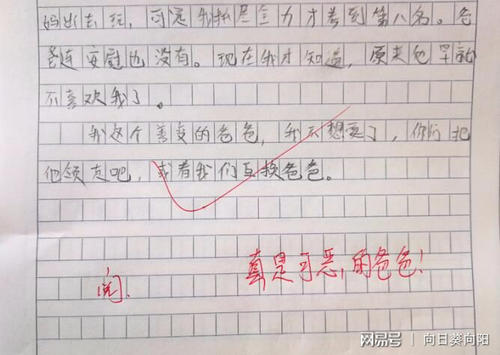 妈出去玩，可是我拟尽全力才考到第八名。爸
爸连安慰也没有。现在我才知道，原来他早就
不喜欢我了。
我这个善变的爸爸，我不想要了，你们把
他领走吧，或者我们互换爸爸。
真是可恶的爸爸！
阅
网易号 | 向日葵向阳